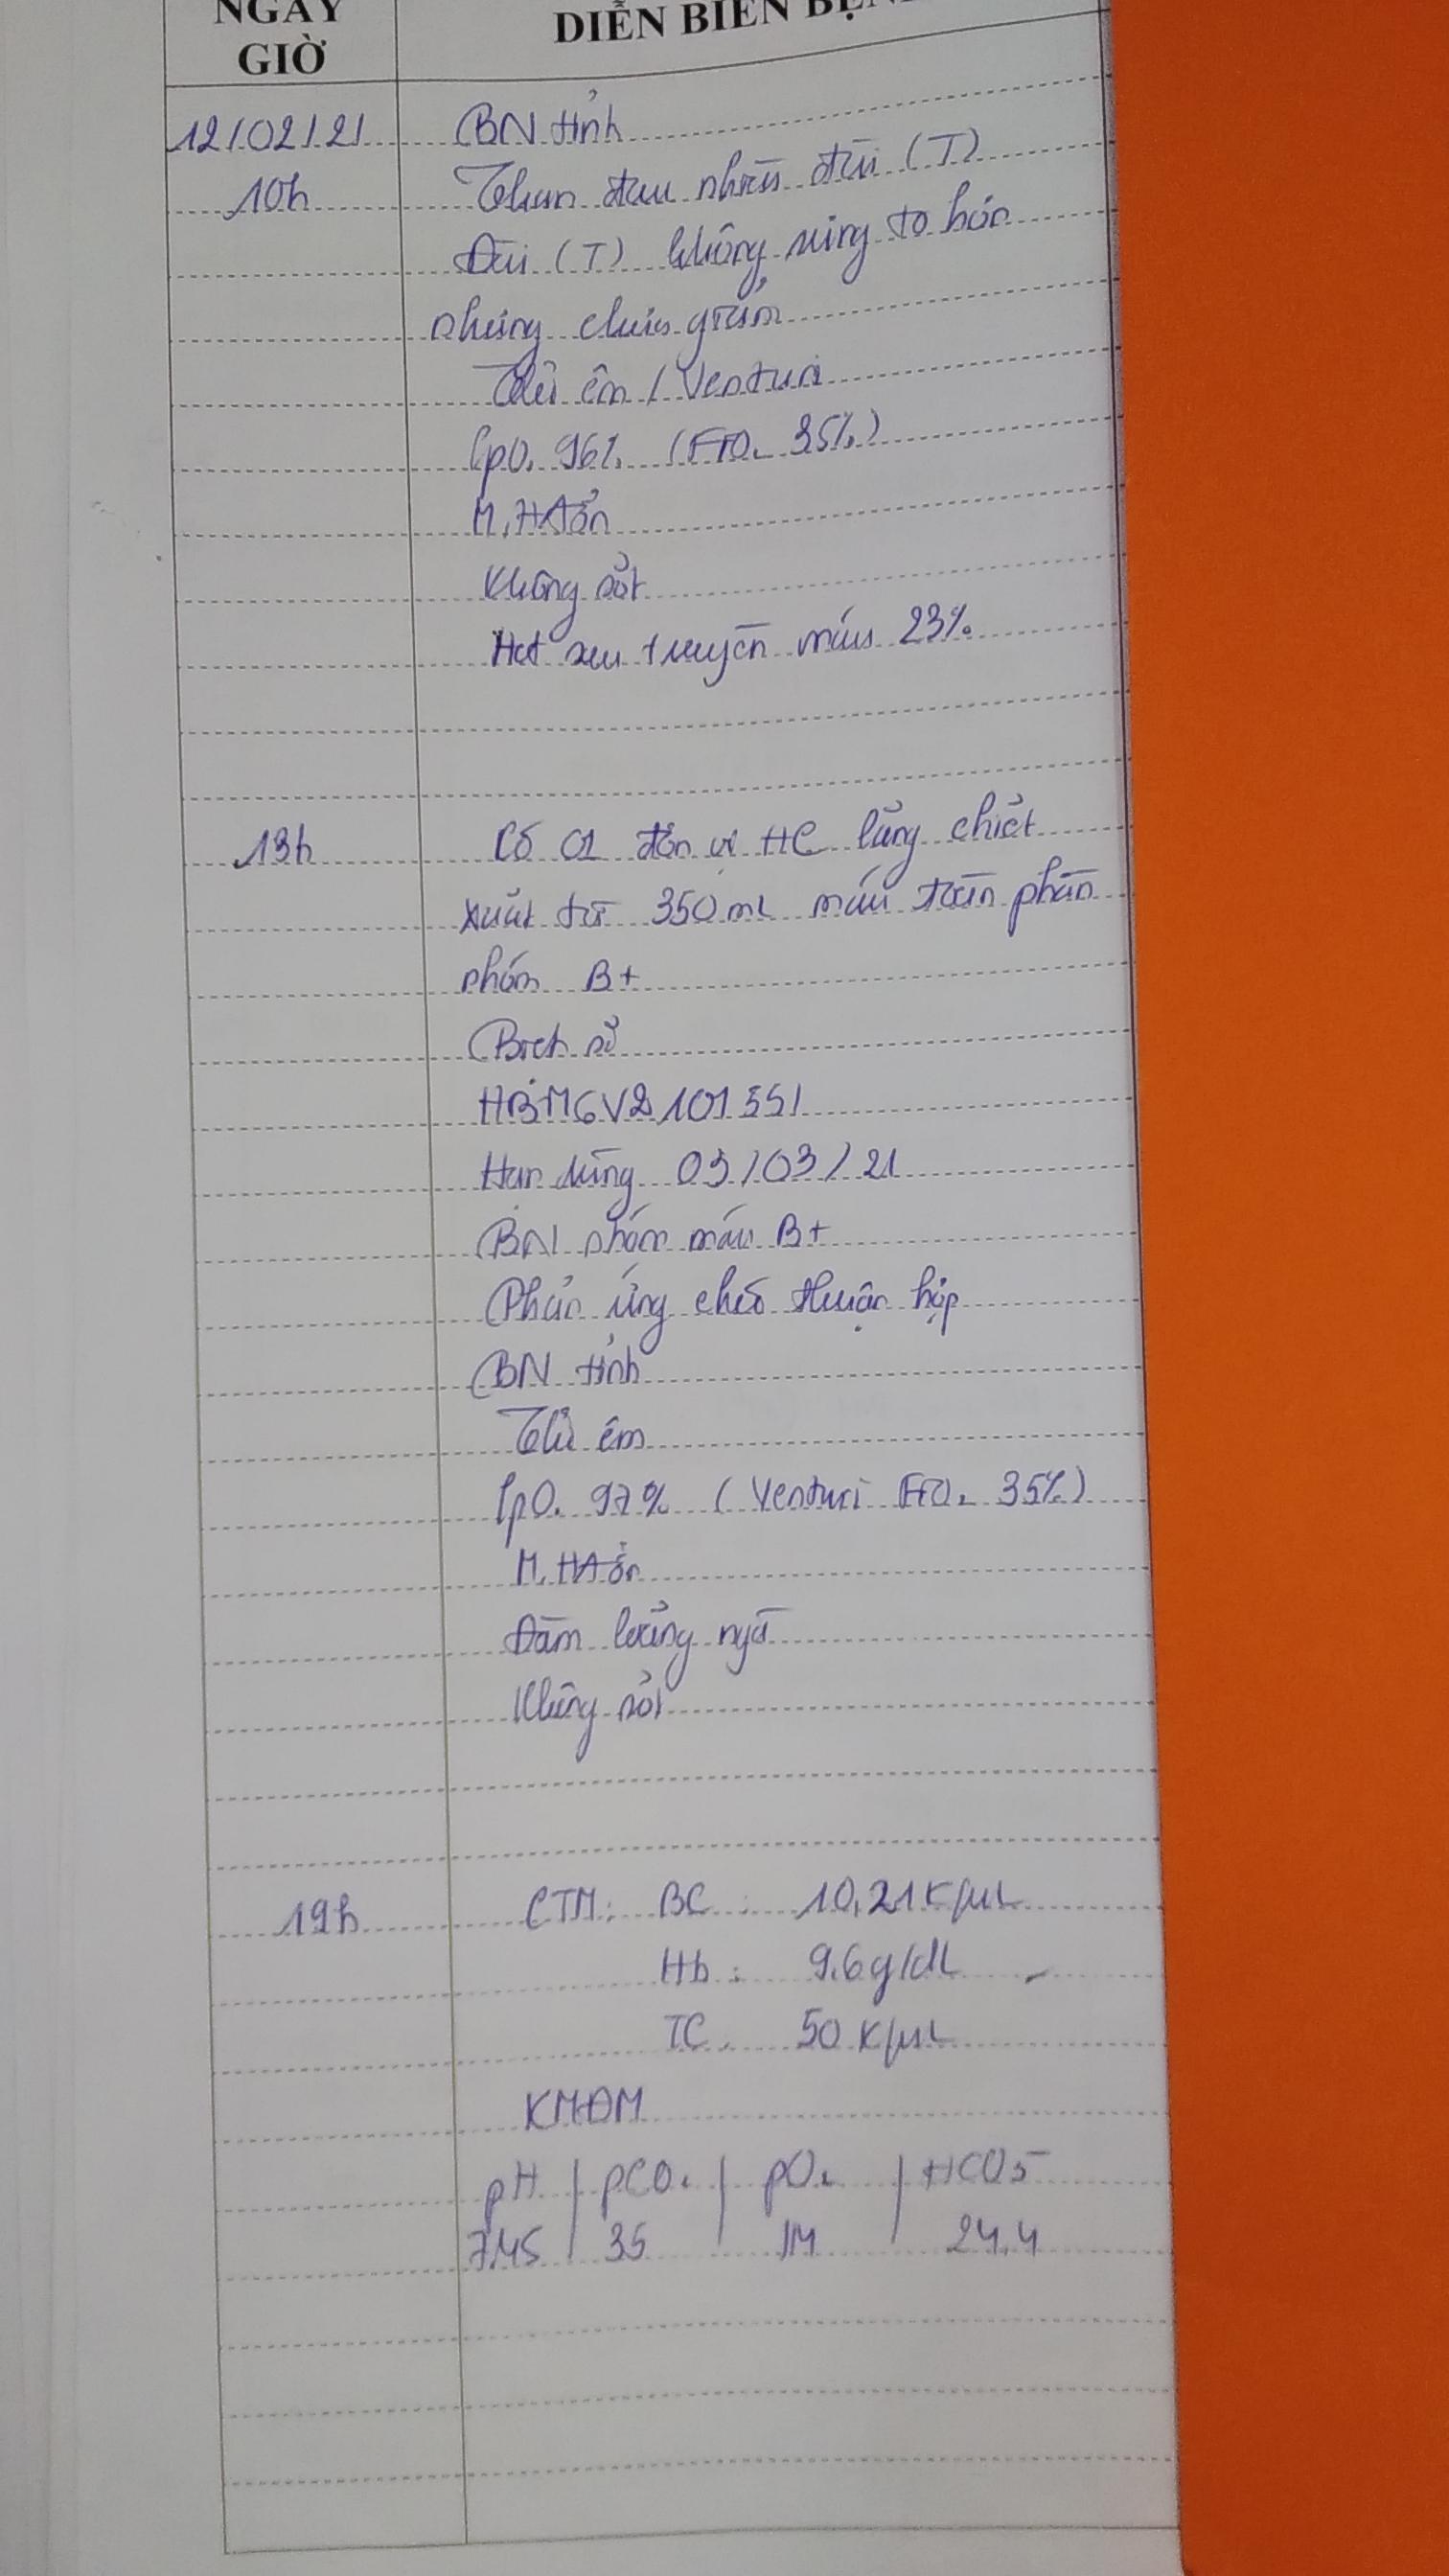 NGÀY
GIỜ
DIỄN BIẾN BỆNH
12/02/21
BN tỉnh
10h
Than đau nhiều đùi (T)
Đùi (T) không sưng to hơn
nhưng chưa giảm
Thở êm / Venturi
SpO2 96% (FiO2 35%)
M, HA ổn
Không sốt
Hct sau truyền máu 23%
13h
Có 01 đơn vị HC lắng chiết
xuất từ 350ml máu toàn phần
nhóm B+
Bịch số
HBM6V2101551
Hạn dùng 03/03/21
BN nhóm máu B+
Phản ứng chéo thuận hợp
BN tỉnh
Thở êm
SpO2 97% (Venturi FiO2 35%)
M, HA ổn
Đàm loãng ngà
Không sốt
19h
CTM: BC : 10,21 K/µL
Hb : 9.6 g/dL
TC : 50 K/µL
KMĐM
pH | pCO2 | pO2 | HCO3-
7.45 | 35 24.4